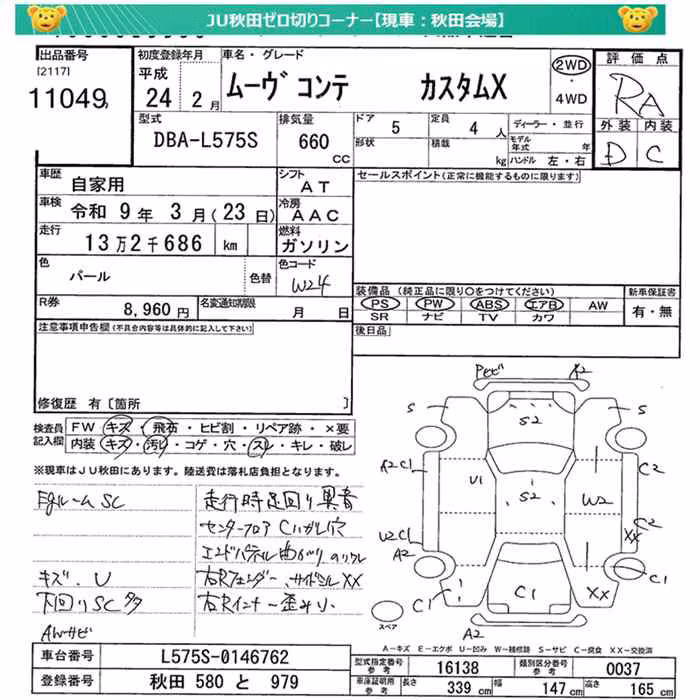 JU秋田ゼロ切りコーナー【現車：秋田会場】
出品番号
[2117]
11049
初度登録年月
平成
24 2月
車名・グレード
ムーヴ コンテ カスタムX
2WD
・
4WD
評価点
RA
外装 内装
D C
型式
DBA-L575S
排気量
660
CC
ドア 5
定員 4 人
形状
積載 kg
ディーラー・並行
モデル年式 年
ハンドル 左・右
車歴 自家用
シフト AT
車検 令和 9年 3月(23日)
冷房 AAC
走行 13万2千686 km
燃料 ガソリン
色 パール
色替
色コード W24
R券 8,960円
名変通知期限 月 日
セールスポイント(正常に機能するものに限ります)
装備品 (純正品に限り○をつけてください)
PS PW ABS エアB AW
SR ナビ TV カワ
新車保証書
有・無
注意事項申告欄(不具合内容等は具体的に記入して下さい)
後日品
修復歴 有〔箇所 〕
検査員記入欄
FW キズ・飛石・ヒビ割・リペア跡・×要
内装 キズ・汚れ・コゲ・穴・スレ・キレ・破レ
※現車はJU秋田にあります。陸送費は落札店負担となります。
ルーム SC
キズ、U
下回りSC多
AWサビ
走行時足回り異音
センターフロア Cハガレ穴
エンドパネル曲
右Rフェンダー、サイドシル XX
右Rインナー歪み
A2
S S
S2
A2 C1
U1
S2
W2
C2
C2
XX
U2 C1
A2
C1
C1
XX
C1
A2
スペア
A-キズ E-エクボ U-凹み W-補修跡 S-サビ C-腐食 XX-交換済
車台番号 L575S-0146762
登録番号 秋田 580 と 979
型式指定番号 参考 16138
類別区分番号 参考 0037
車庫証明用 参考 長さ 339 cm 幅 147 cm 高さ 165 cm